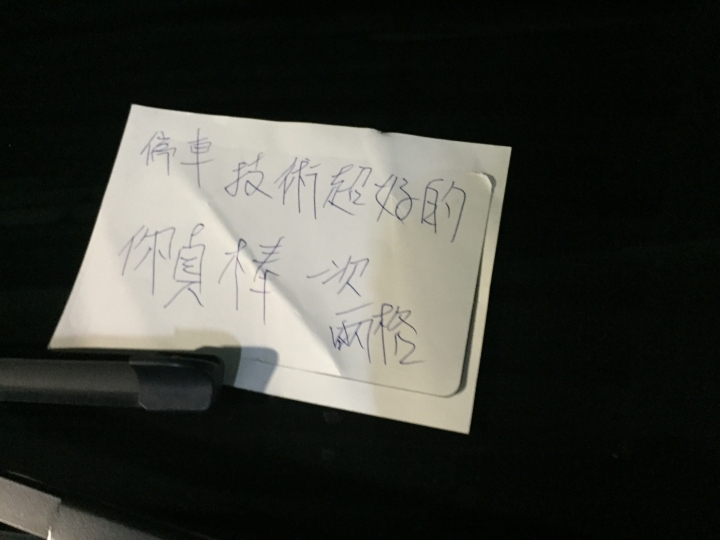 停車技術超好的
你真棒一次
兩格